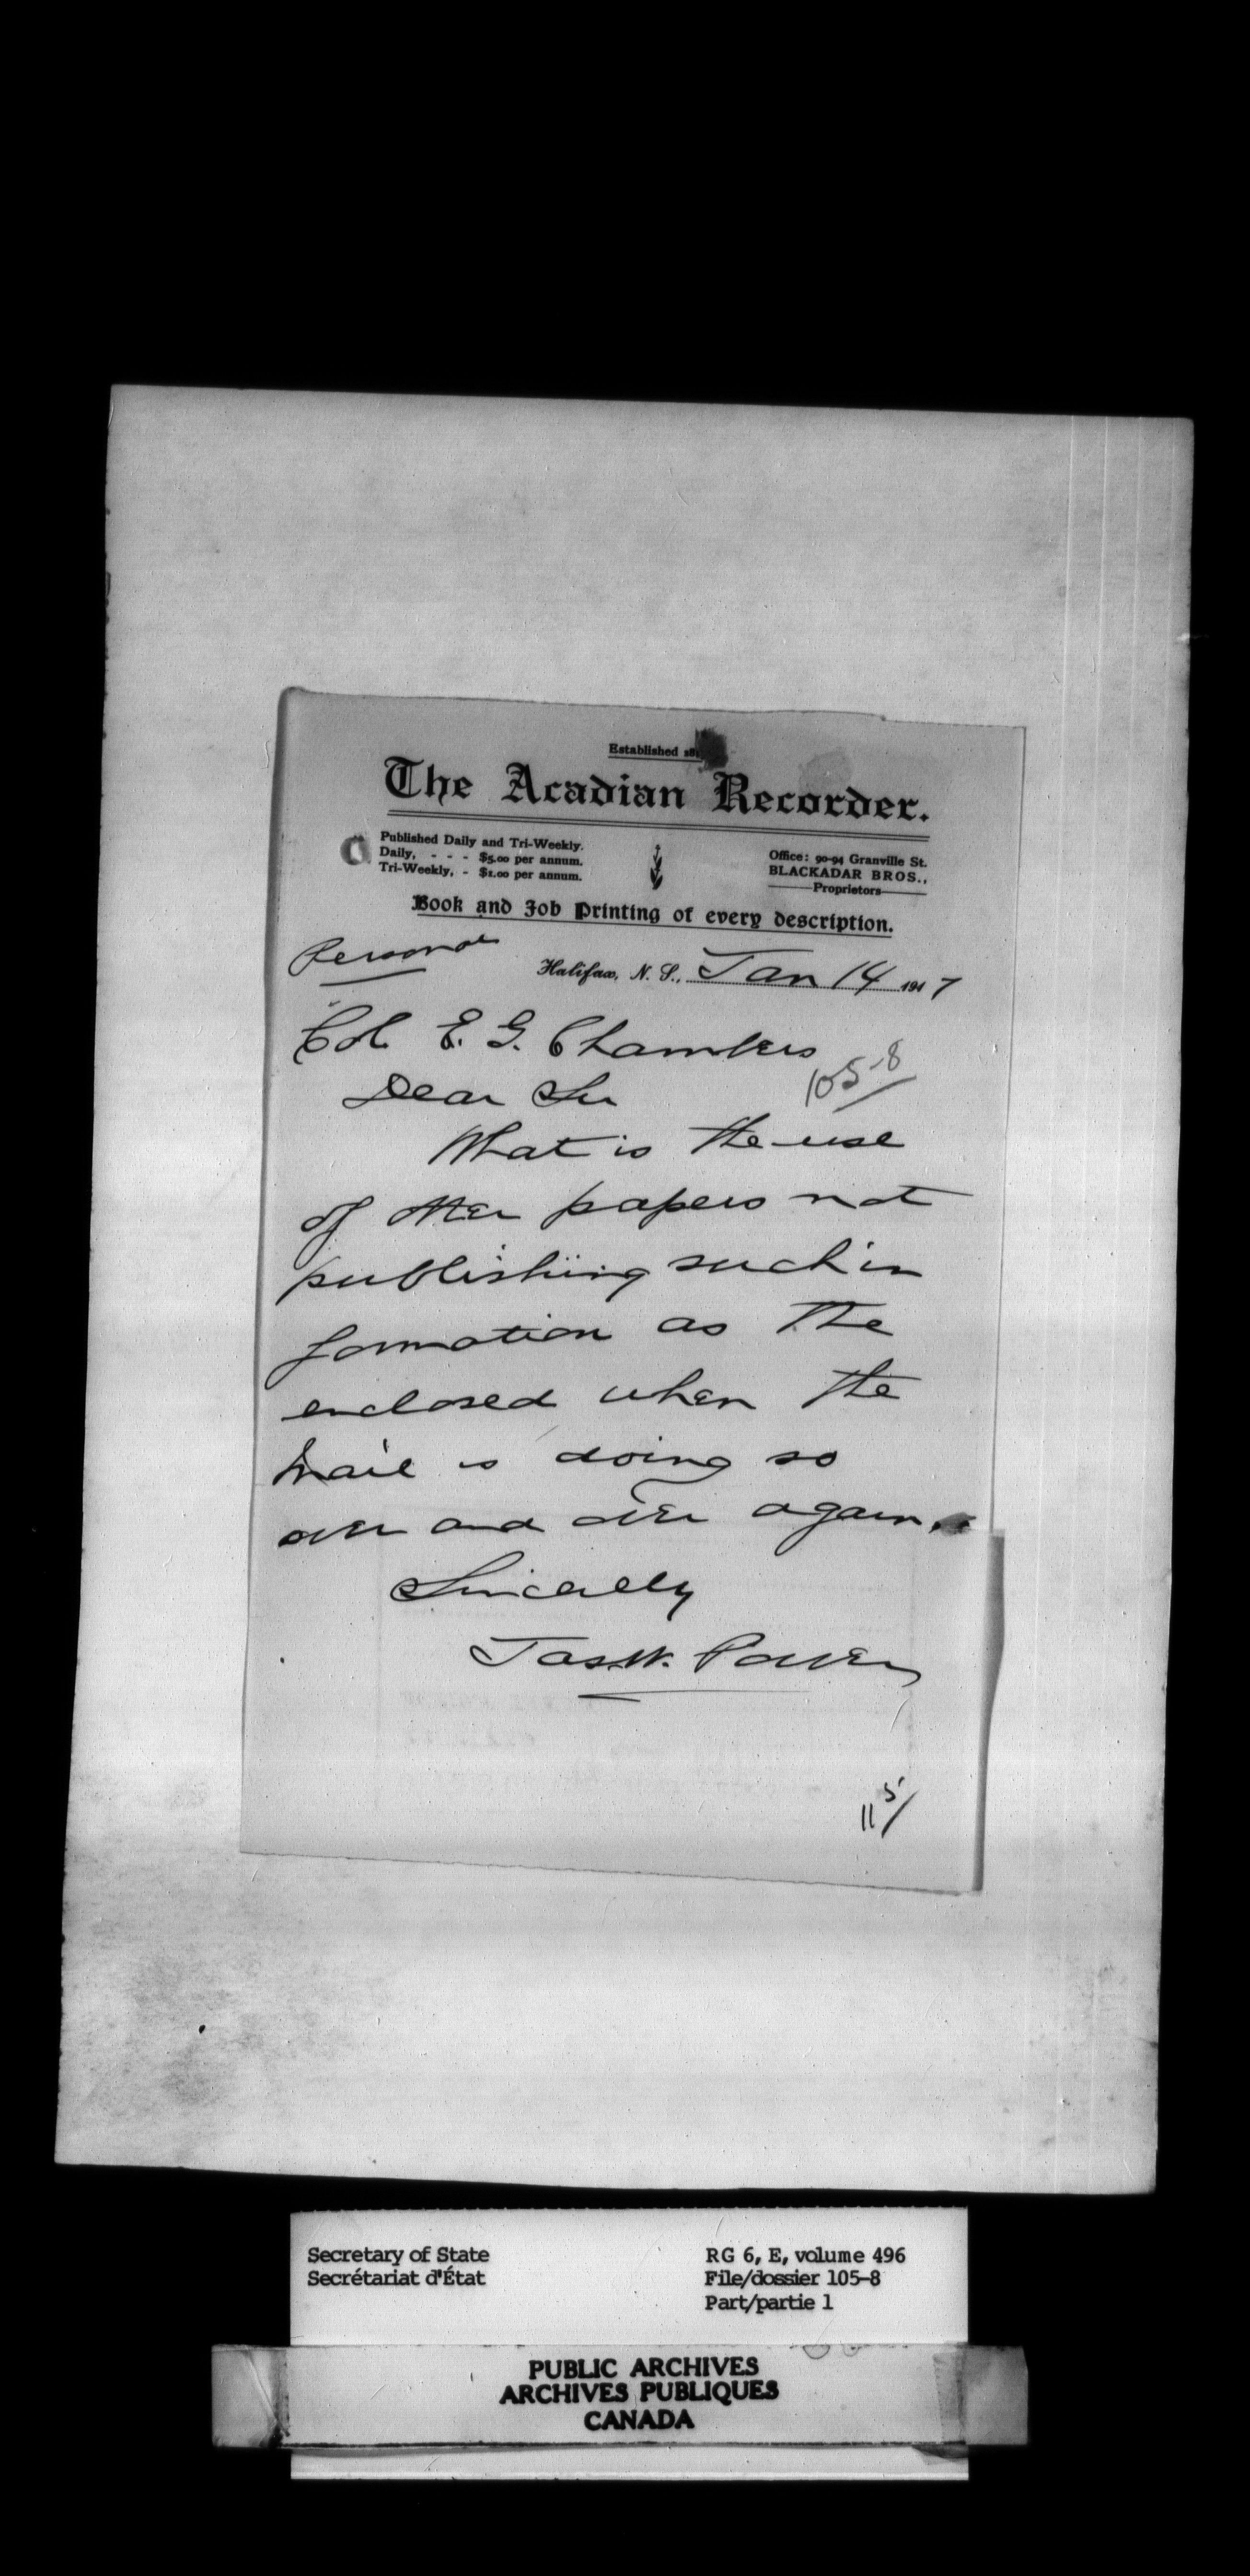 Established 181
The Acadian Recorder.
Published Daily and Tri-Weekly.
Daily, - - - $5.00 per annum.
Tri-Weekly, - $1.00 per annum.
Office: 90-94 Granville St.
BLACKADAR BROS.,
Proprietors
Book and Job Printing of every description.
Personal
Halifax, N. S., Jan 14 1917
Col. E. G. Chambers
105-8
Dear Sir
What is the use
of other papers not
publishing such in
formation as the
enclosed when the
mail is doing so
over and over again.
Sincerely
Jas. W. Power
115/
Secretary of State
Secrétariat d'État
RG 6, E, volume 496
File/dossier 105-8
Part/partie 1
PUBLIC ARCHIVES
ARCHIVES PUBLIQUES
CANADA